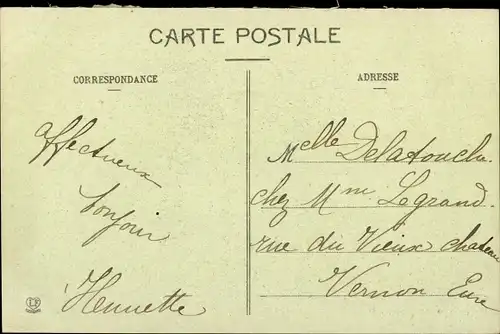 CARTE POSTALE
CORRESPONDANCE
ADRESSE
affectueux
bonjour
Henriette
Melle Delatouche
chez Mme Legrand.
rue du Vieux chateau
Vernon Eure